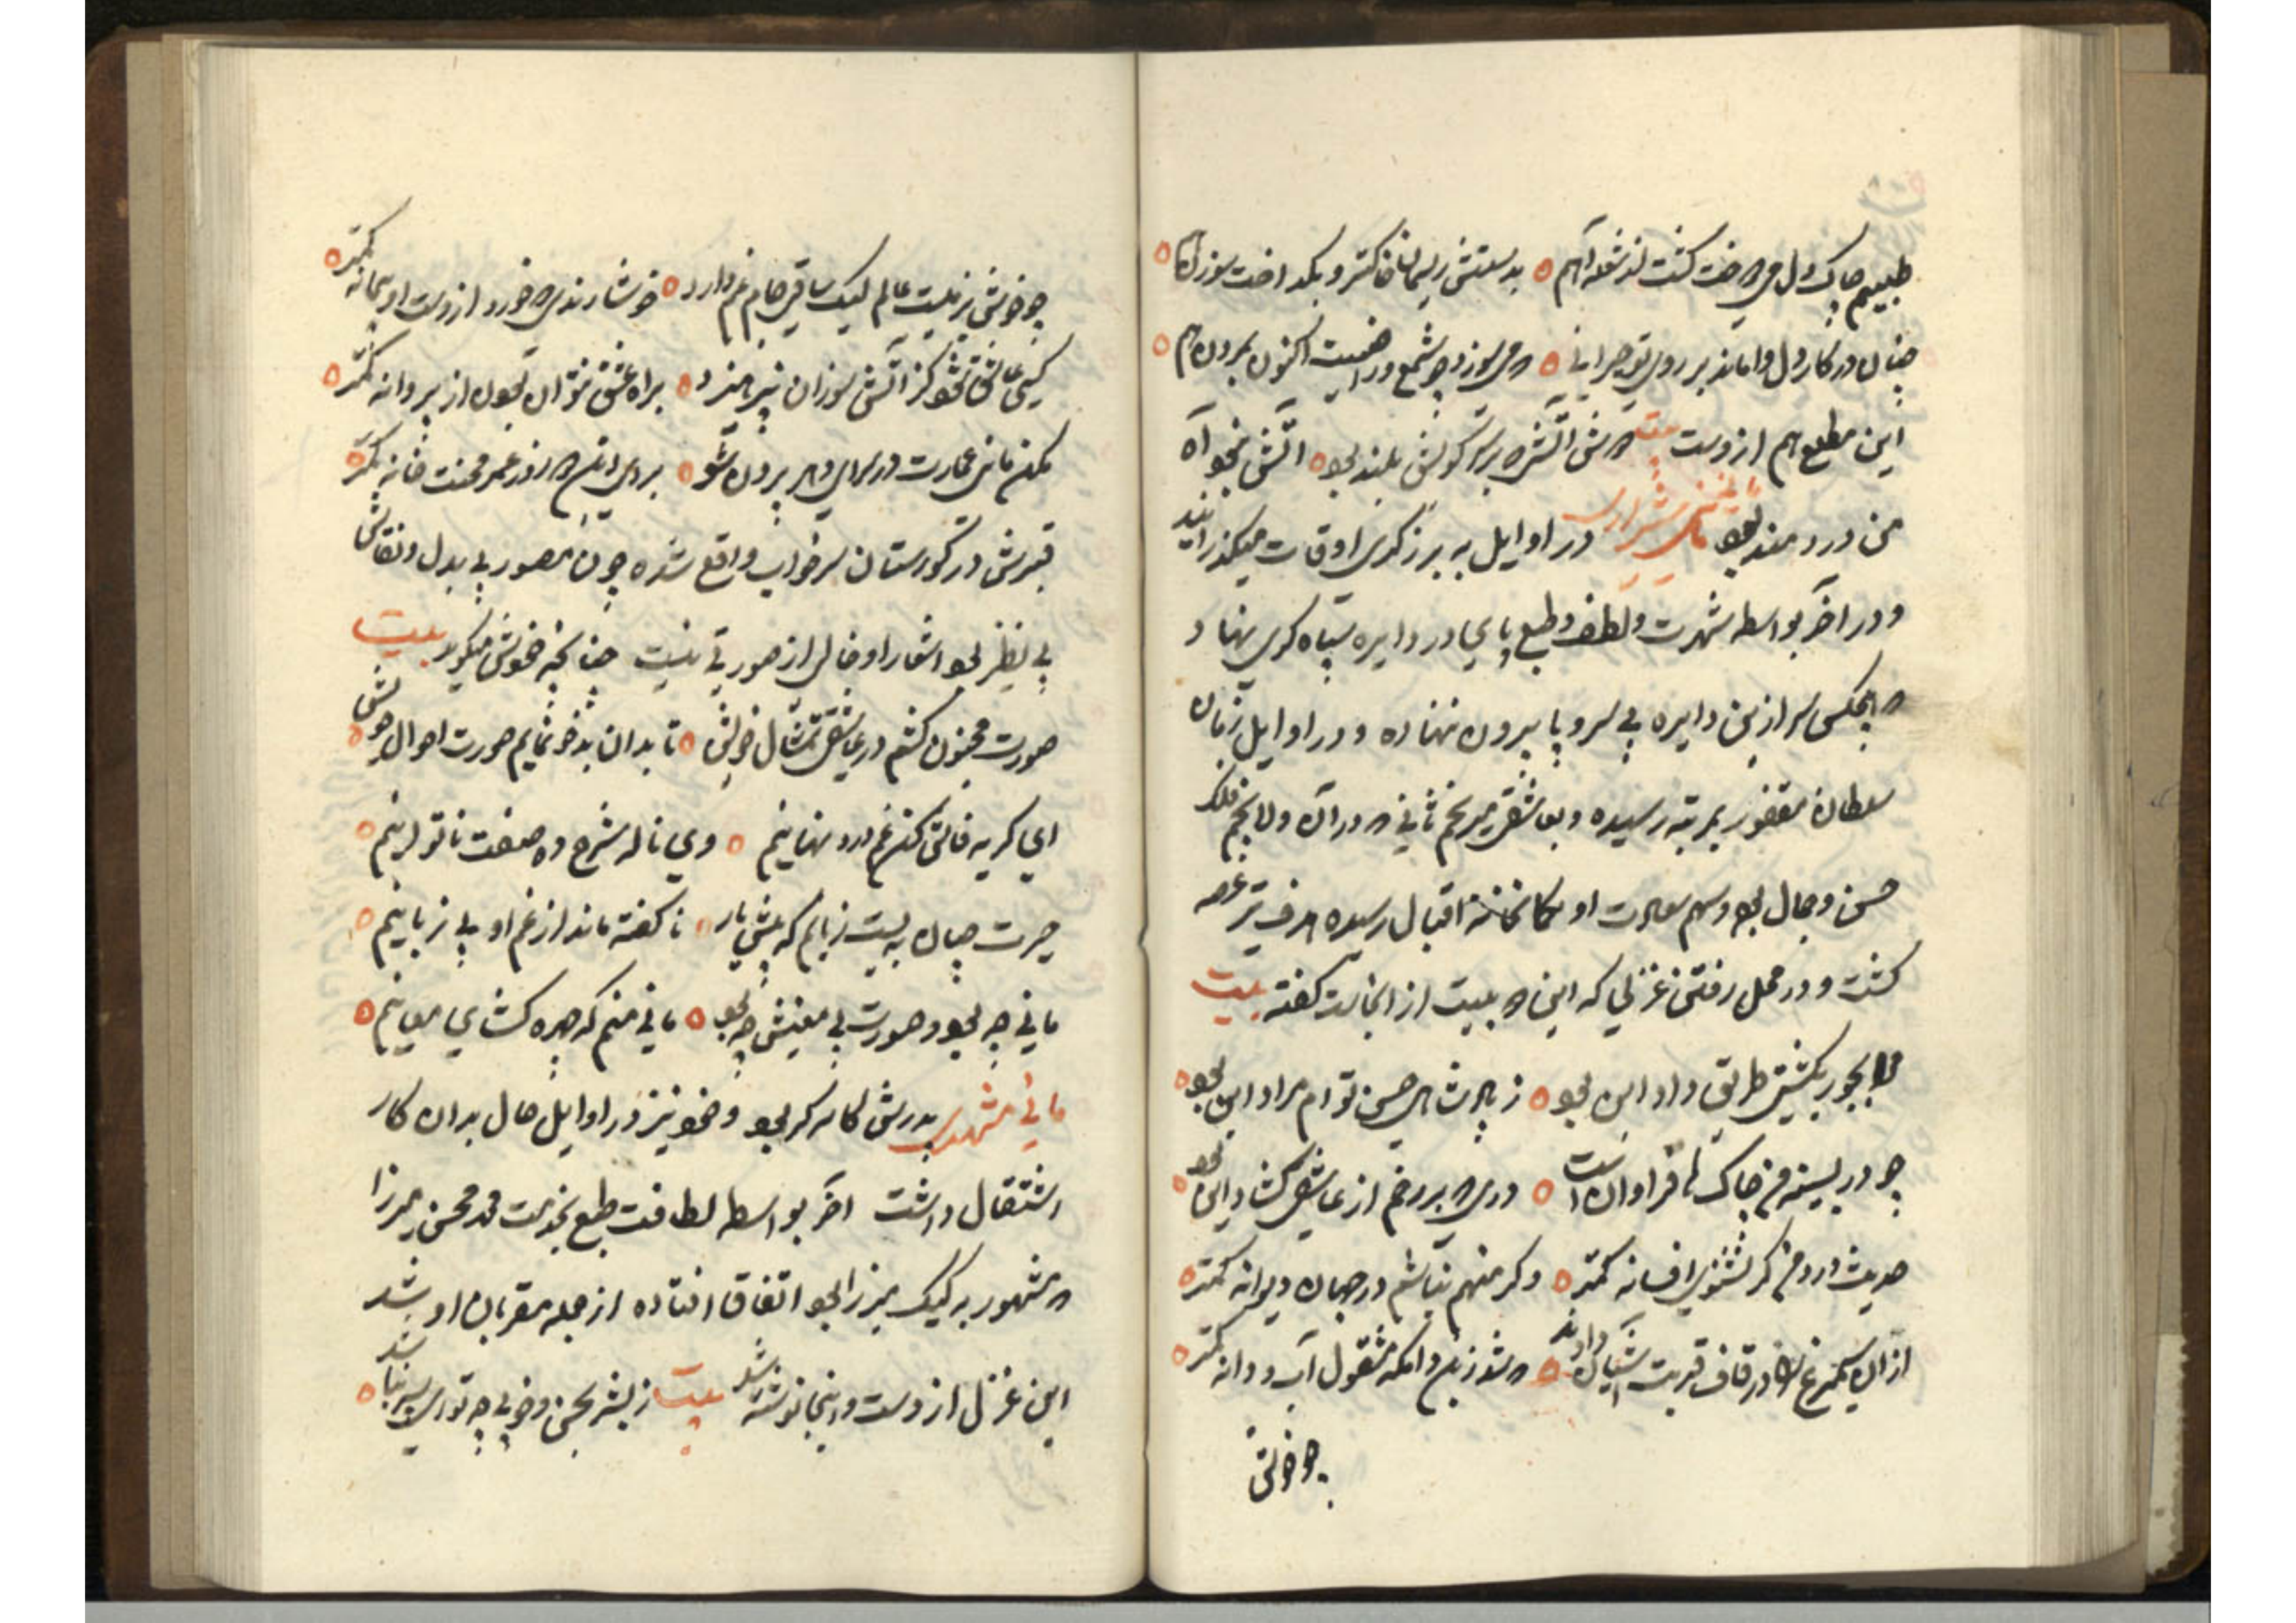 طبیبم چاک دل می دوخت گشت از شعله آهم ه بدستش ریسمان خاکستر و بگداخت سوزن ها ه
چنان در کار دل وا ماند بر روی تو حیرانی ه که می سوزد چو شمع و اکنون مردن هم ه
این مطلع هم ازوست بیت دوش آتش که بر سر کویش بلند بود ه آتش نبود آه
من دردمند بود مانی شیرازی در اوایل به برزگری اوقات میگذرانید
و در آخر بواسطه شهرت و لطف طبع پای در دایره سپاه گری نهاد
که هیچکس سر ازین دایره بی سر و پا بیرون ننهاده و در اوایل زمان
سلطان مغفور بمرتبه رسیده و بعاشقی میر نجم ثانی که در آن ولا نجم فلک
حسن و جمال بود و سهم سعادت او بکمانخانه اقبال رسیده هدف تیر غصه
گشت و در محل رفتن غزلی که این بیت از انجاست گفته بیت
مرا بجور بکشتی طریق داد این بود ه ز پادشاهی حسن توام مراد این بود ه
چو در بسینه من چاک ها فراوانست ه دری که بر رخم از عاشقی گشاد این بود ه
حدیث درد من گر نشنوی افسانه کمتر ه وگر من هم نباشم در جهان دیوانه کمتر ه
از آن سیمرغ را در قاف قربت آشیان دادند ه که شد زین دامگه مشغول آب و دانه کمتر ه
چو خوش
چو خوش بزمیست عالم لیک ساقی جام غم دارد ه خوشا رندی که خورد از دست او پیمانه کمتر ه
کسی عاشق نبود کز آتش سوزان بپرهیزد ه براه عشق نتوان بود از پروانه کمتر ه
مکن مانی عمارت در سرای دهر بیرون شو ه برای این دو روز عمر محنت خانه کمتر ه
قبرش در گورستان سرخاب واقع شده چون مصور بی بدل و نقاش
بی نظیر بود اشعار او خالی از صورتی نیست چنانچه خودش میگوید بیت
صورت مجنون کشم در عاشقی تمثال خویش ه تا بدان بدخو نمایم صورت احوال خویش ه
ای گریه فاش کن غم درد نهانیم ه وی ناله شرح ده صفت ناتوانیم ه
حیرت چنان به بست زبانم که پیش یار ه ناگفته ماند از غم او بی زبانیم ه
مانی چه بود و صورت بی معنیش چه بود ه مانی منم که چهره گشای معانیم ه
مانی مشهدی پدرش کاسه گر بود و خود نیز در اوایل حال بدان کار
اشتغال داشت آخر بواسطه لطافت طبع بخدمت محمد محسن میرزا
که مشهور به کیک میرزا بود اتفاق افتاده از جمله مقربان او شد
این غزل ازوست و اینجا نوشته شد بیت ز بشر بحسن و خوبی چو تو ای پسر نباشد ه